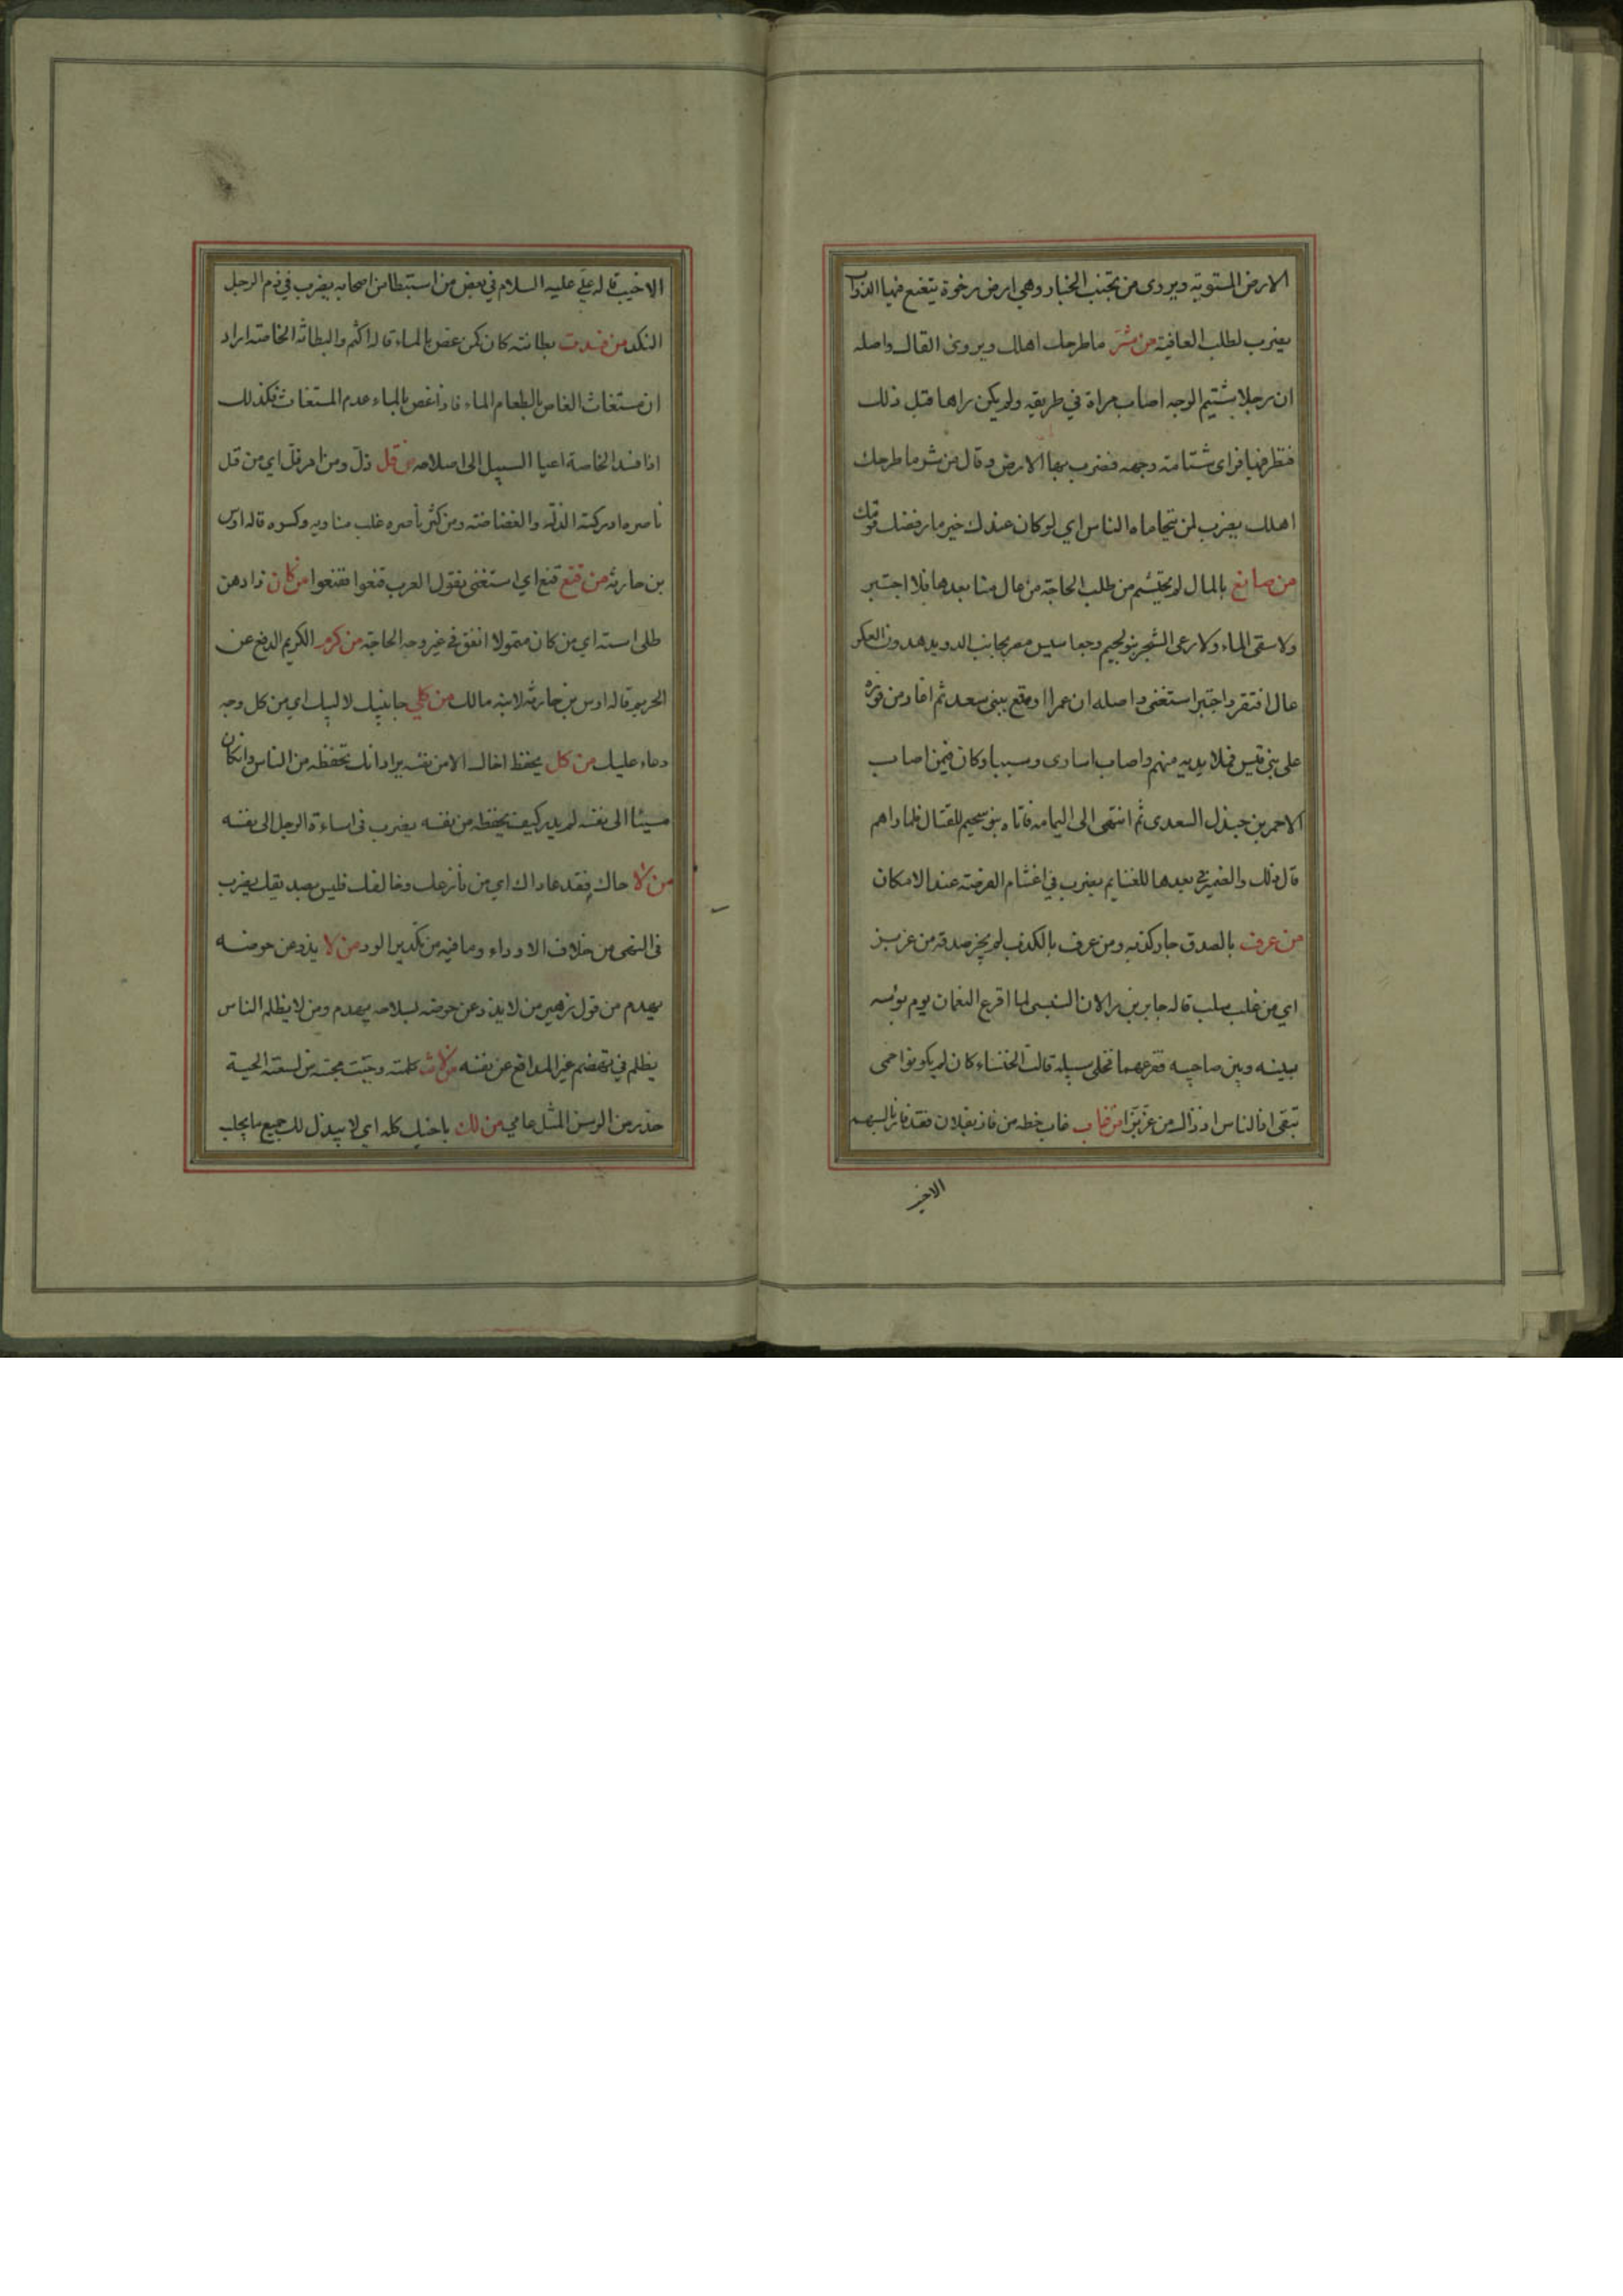 الارض المستوية ويروى من تجنب الخبار وهي ارض رخوة يتغنع فيها الدواب
يضرب لطلب العافية من شر ما طرحك اهلك ويروى القاك واصله
ان رجلا شتيم الوجه اصاب مراة في طريقه ولم يكن راها قبل ذلك
فنظر فيها فراى شتامة وجهه فضرب بها الارض وقال من شر ما طرحك
اهلك يضرب لمن يتحاماه الناس اي لو كان عندك خير ما رفضك قومك
من صانع بالمال لم يحتشم من طلب الحاجة من عال منا بعدها فلا اجتبر
ولا سقى الماء ولا رعى الشجر بنو لجيم وجعاسيس مضر بجانب الدو يدهدون العكر
عال افتقر واجتبر استغنى واصله ان عمرا اوقع ببني سعد ثم اغار من فوره
على بني قيس فملا يديه منهم واصاب اسارى وسبيا وكان فيمن اصاب
الاحمر بن جندل السعدى ثم انتهى الى اليمامة فاتاه بنو سحيم للقتال فلما راهم
قال ذلك والغميرى بعدها للغنايم يضرب في اغتنام الفرصة عند الامكان
من عرف بالصدق جاز كذبه ومن عرف بالكذب لم يجز صدقه من عز بز
اي من غلب سلب قاله جابر بن رالان السنبسى لما اقرع النعمان يوم بوسه
بينه وبين صاحبيه فقرعهما فخلى سبيله قالت الخنساء كان لم يكونوا حمى
يتقى اذ الناس اذ ذاك من عز بزا من غاب غاب حظه من فاز بفلان فقد فاز بالسهم
الاخيب
الاخيب قاله علي عليه السلام في بعض من استبطا من اصحابه يضرب في ذم الرجل
النكد من فسدت بطانته كان كمن غص بالماء قاله اكثم والبطانة الخاصة اراد
ان مستغاث الغاص بالطعام الماء فاذا غص بالماء عدم المستغاث فكذلك
اذا فسد الخاصة اعيا السبيل الى اصلاحه من قل ذل ومن امر فل اي من قل
ناصره ادركته الذلة والغضاضة ومن كثر ناصره غلب مناويه وكسره قاله اوس
بن حارثة من قنع فنع اي استغنى يقول العرب قنعوا ففنعوا من كان ذا دهن
طلى استه اي من كان متمولا انفق في غير وجه الحاجة من كرم الكريم الدفع عن
الحريم قاله اوس بن حارثة لابنه مالك من كلي جانبيك لا لبيك اي من كل وجه
دعاء عليك من كل يحفظ اخاك الا من نفسه يراد انك تحفظه من الناس وان كان
مسيئا الى نفسه لم يدر كيف يحفظه من نفسه يضرب في اساءة الرجل الى نفسه
من لا حاك فقد عاداك اي من نازعك وخالفك فليس بصديقك يضرب
في النهى من خلاف الاوداء وما فيه من تكدير الود من لا يذد عن حوضه
يهدم من قول زهير من لا يذد عن حوضه بسلاحه يهدم ومن لا يظلم الناس
يظلم في تهضم غير المدافع عن نفسه من لانت كلمته وجبت محبته من لسعته الحية
حذر من الرسن المثل عامي من لك باخيك كله اي لا يبذل لك جميع ما يجلب